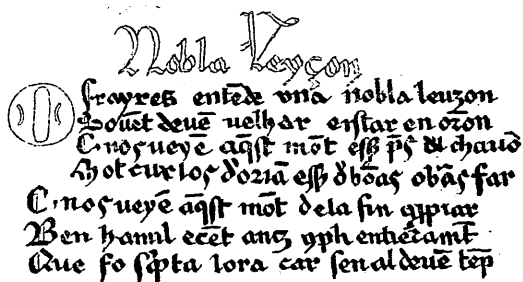 Nobla Leyçon
O frayres entēde una nobla leyzon
Souēt deuē uelhar e istar en orōn
C. nos ueyē aq̄st mōt ess̄ p̄s del chauō
Mot curios d'oriā ess̄ d'bōas obās far
C. nos ueyē aq̄st mōt de la fin apropiar
Ben ha mil e cēt ancz 9pli entieramēt
Que fo sc̄pta lora car sen al deuē tēp